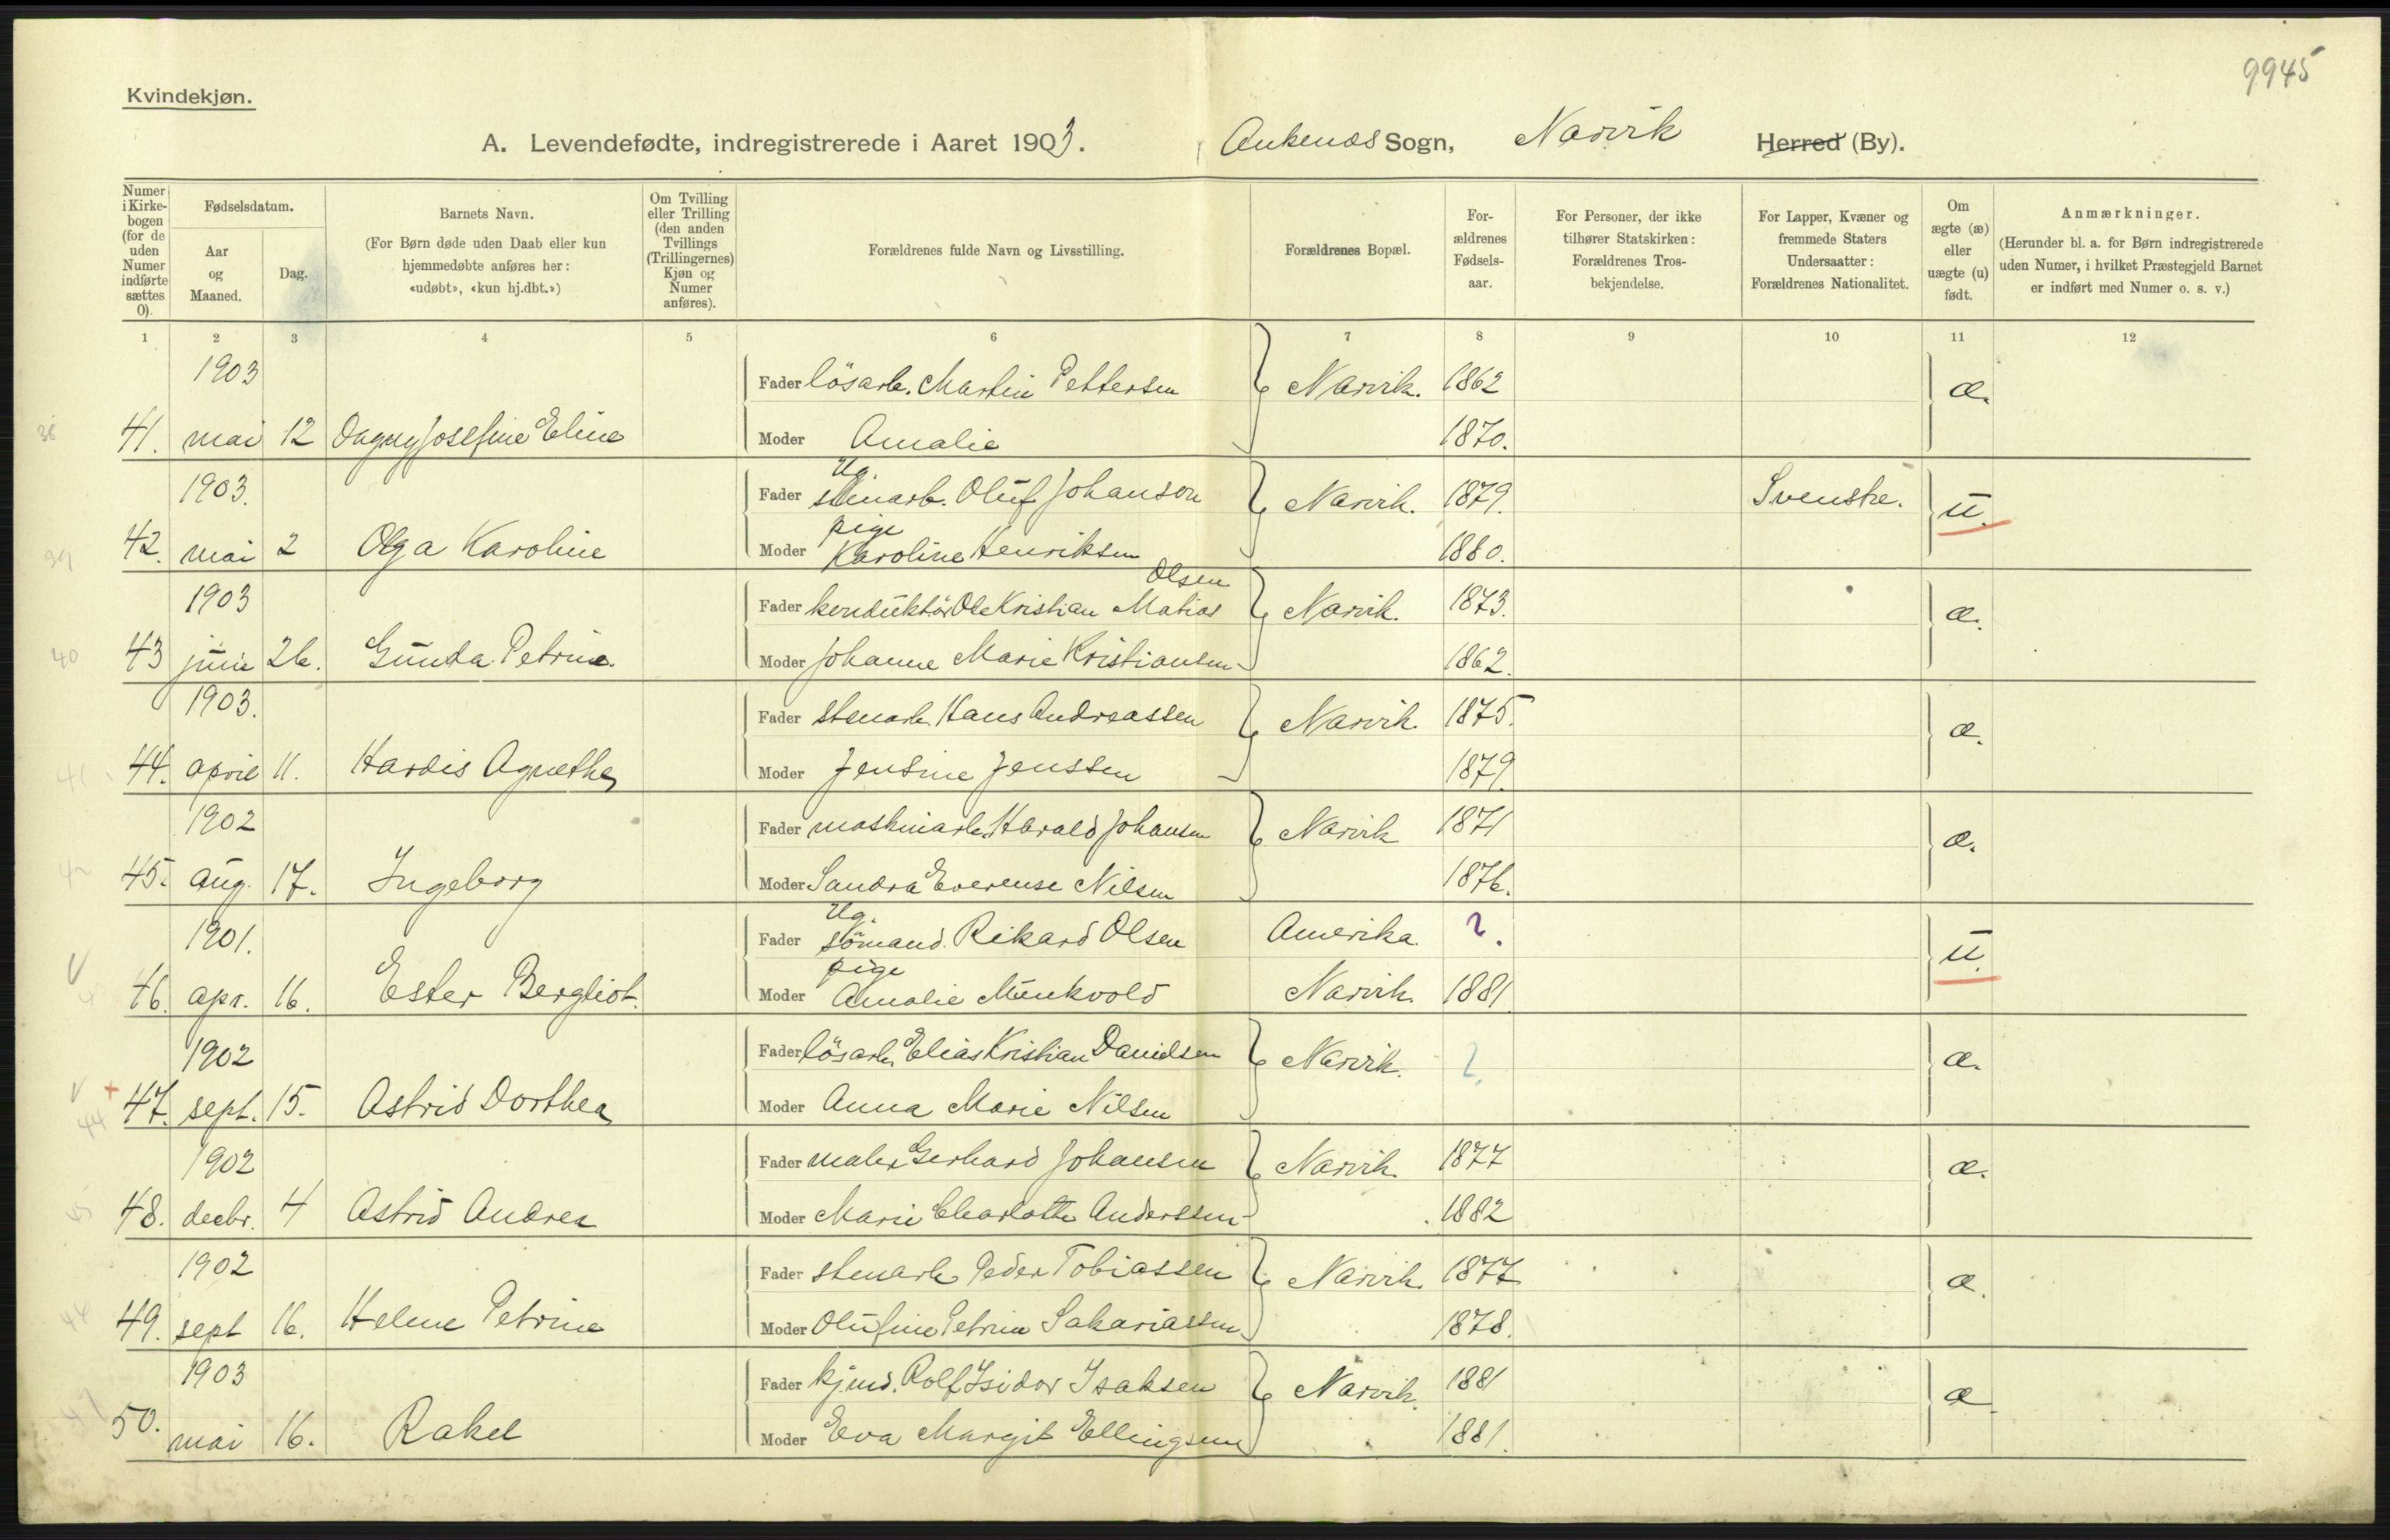 9945
Kvindekjøn.
A. Levendefødte, indregistrerede i Aaret 1903. Ankenæs Sogn, Narvik Herred (By).
Numer i Kirkebogen (for de uden Numer indførte sættes 0).
Fødselsdatum.
Aar og Maaned.
Dag.
Barnets Navn.
(For Børn døde uden Daab eller kun hjemmedøbte anføres her: «udøbt», «kun hj.dbt.»)
Om Tvilling eller Trilling (den anden Tvillings (Trillingernes) Kjøn og Numer anføres).
Forældrenes fulde Navn og Livsstilling.
Forældrenes Bopæl.
Forældrenes Fødselsaar.
For Personer, der ikke tilhører Statskirken: Forældrenes Trosbekjendelse.
For Lapper, Kvæner og fremmede Staters Undersaatter: Forældrenes Nationalitet.
Om ægte (æ) eller uægte (u) født.
Anmærkninger.
(Herunder bl. a. for Børn indregistrerede uden Numer, i hvilket Præstegjeld Barnet er indført med Numer o. s. v.)
1 2 3 4 5 6 7 8 9 10 11 12
1903 Fader lösarb. Martin Pettersen Narvik. 1862 æ.
38 41. mai 12 Dagny Josefine Eline Moder Amalie 1870.
Ug.
1903. Fader stenarb. Oluf Johanson Narvik. 1879. Svenske. u.
pige
39 42. mai 2 Olga Karoline Moder Karoline Henriksen 1880.
Olsen
1903 Fader konduktör Ole Kristian Matias Narvik. 1873. æ.
40 43 juni 26. Gunda Petrine. Moder Johanne Marie Kristiansen 1862.
1903. Fader stenarb. Hans Andreassen Narvik. 1875. æ.
41 44. april 11. Hardis Agnethe Moder Jensine Jenssen 1879.
1902 Fader maskinarb. Harald Johansen Narvik 1871 æ.
42 45. aug. 17. Ingeborg Moder Sandra Everense Nilsen 1876.
Ug.
1901. Fader sömand. Rikard Olsen Amerika. ?. u.
pige
46. apr. 16. Ester Bergliot. Moder Amalie Munkvold Narvik. 1881
1902 Fader lösarb. Elias Kristian Danielsen Narvik. ? æ.
44 47. sept. 15. Astrid Dorthea Moder Anna Marie Nilsen
1902 Fader maler Gerhard Johansen Narvik. 1877 æ.
45 48. decbr. 4 Astrid Andrea Moder Marie Charlotte Anderssen 1882
1902 Fader stenarb. Peder Tobiassen Narvik. 1877 æ.
49. sept 16. Helene Petrine Moder Olufine Petrine Sakariassen 1878.
1903 Fader kjmd. Rolf Isidor Isaksen Narvik. 1881 æ.
47 50. mai 16. Rakel Moder Eva Margit Ellingsen 1881.